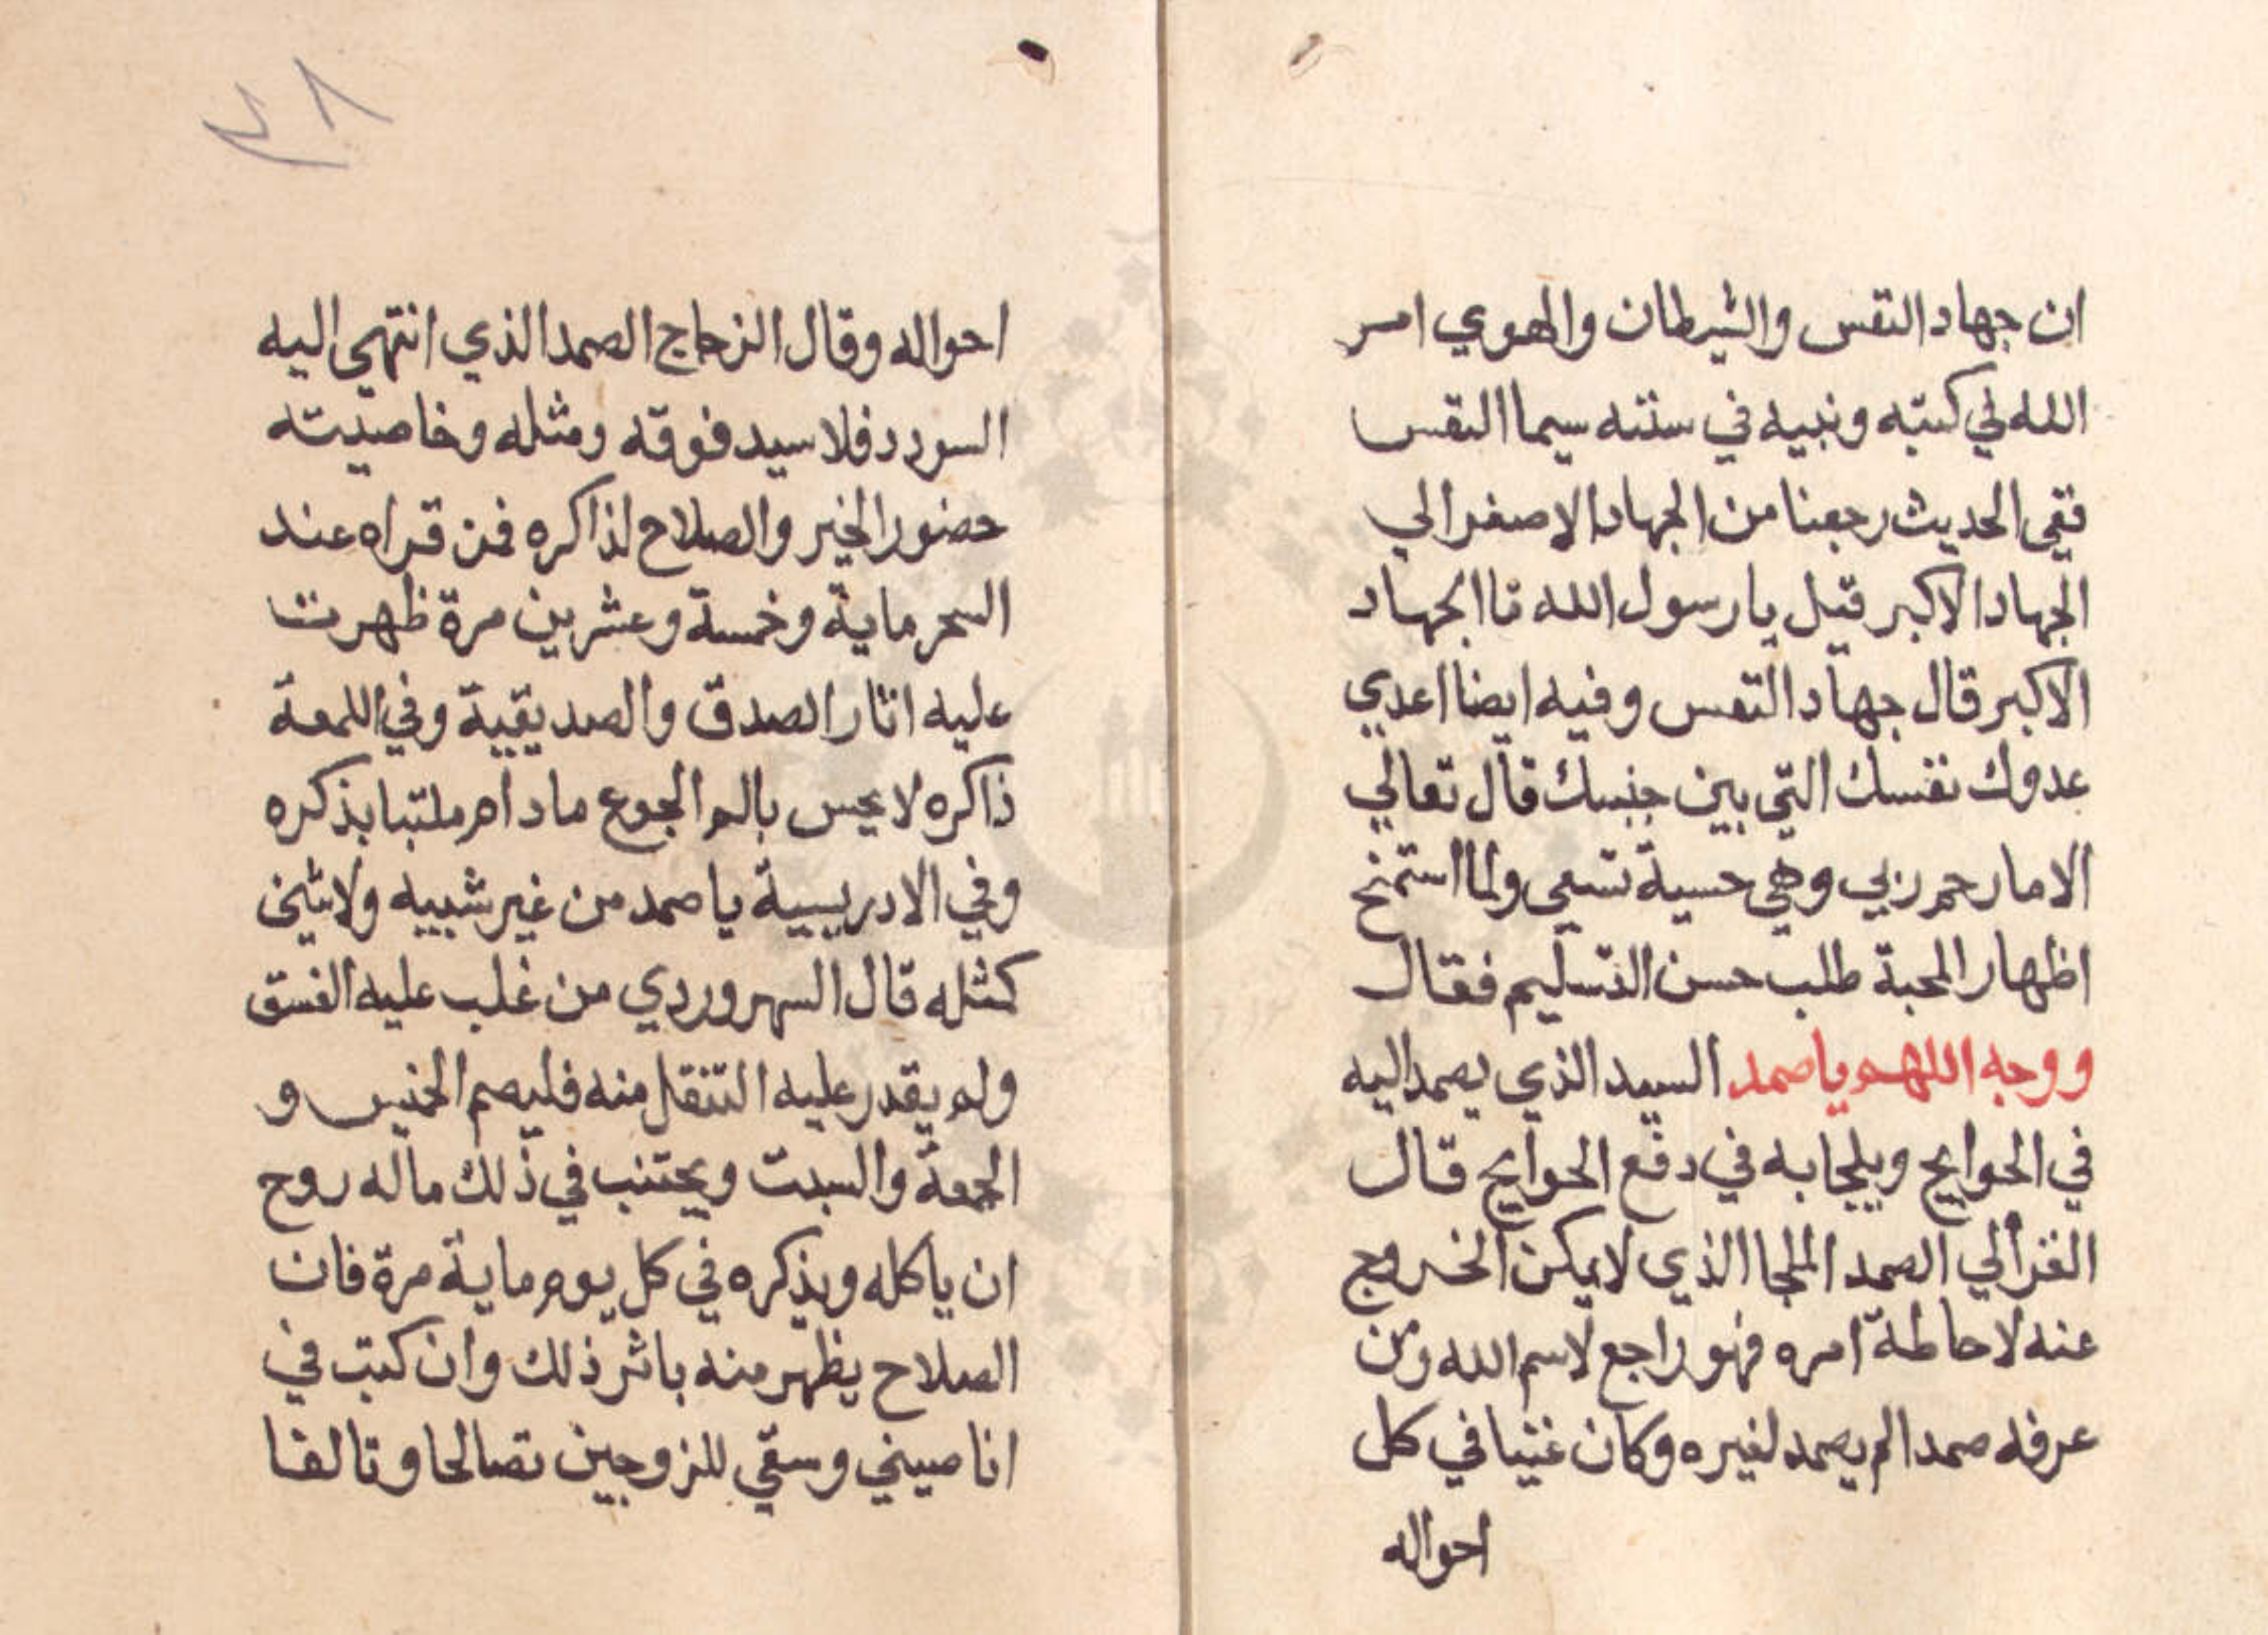 ان جهاد النفس والشيطان والهوي امر
الله في كتبه ونبيه في سنته سيما النفس
ففي الحديث رجعنا من الجهاد الاصغر الي
الجهاد الاكبر قيل يا رسول الله ما الجهاد
الاكبر قال جهاد النفس وفيه ايضا اعدي
عدوك نفسك التي بين جنبيك قال تعالي
الا ما رحم ربي وهي حسية تسعي ولما استمنح
اظهار المحبة طلب حسن التسليم فقال
ووجه اللهم يا صمد السيد الذي يصمد اليه
في الحوايج ويلجا به في دفع الحوايج قال
الغزالي الصمد الملجا الذي لا يمكن الخروج
عنه لاحاطة امره فهو راجع لاسم الله ومن
عرفه صمدا لم يصمد لغيره وكان غنيا في كل
احواله
٤٨
احواله وقال الزجاج الصمد الذي انتهي اليه
السودد فلا سيد فوقه ومثله وخاصيته
حضور الخير والصلاح لذاكره فمن قراه عند
السحر ماية وخمسة وعشرين مرة ظهرت
عليه اثار الصدق والصديقية وفي اللمعة
ذاكره لا يحس بالم الجوع ما دام ملتبسا بذكره
وفي الادريسية يا صمد من غير شبيه ولا شي
كمثله قال السهروردي من غلب عليه الفسق
ولم يقدر عليه التنقل منه فليصم الخميس و
الجمعة والسبت ويجتنب في ذلك ما له روح
ان ياكله ويذكره في كل يوم ماية مرة فان
الصلاح يظهر منه باثر ذلك وان كتب في
انا صيني وسقي للزوجين تصالحا وتالفا